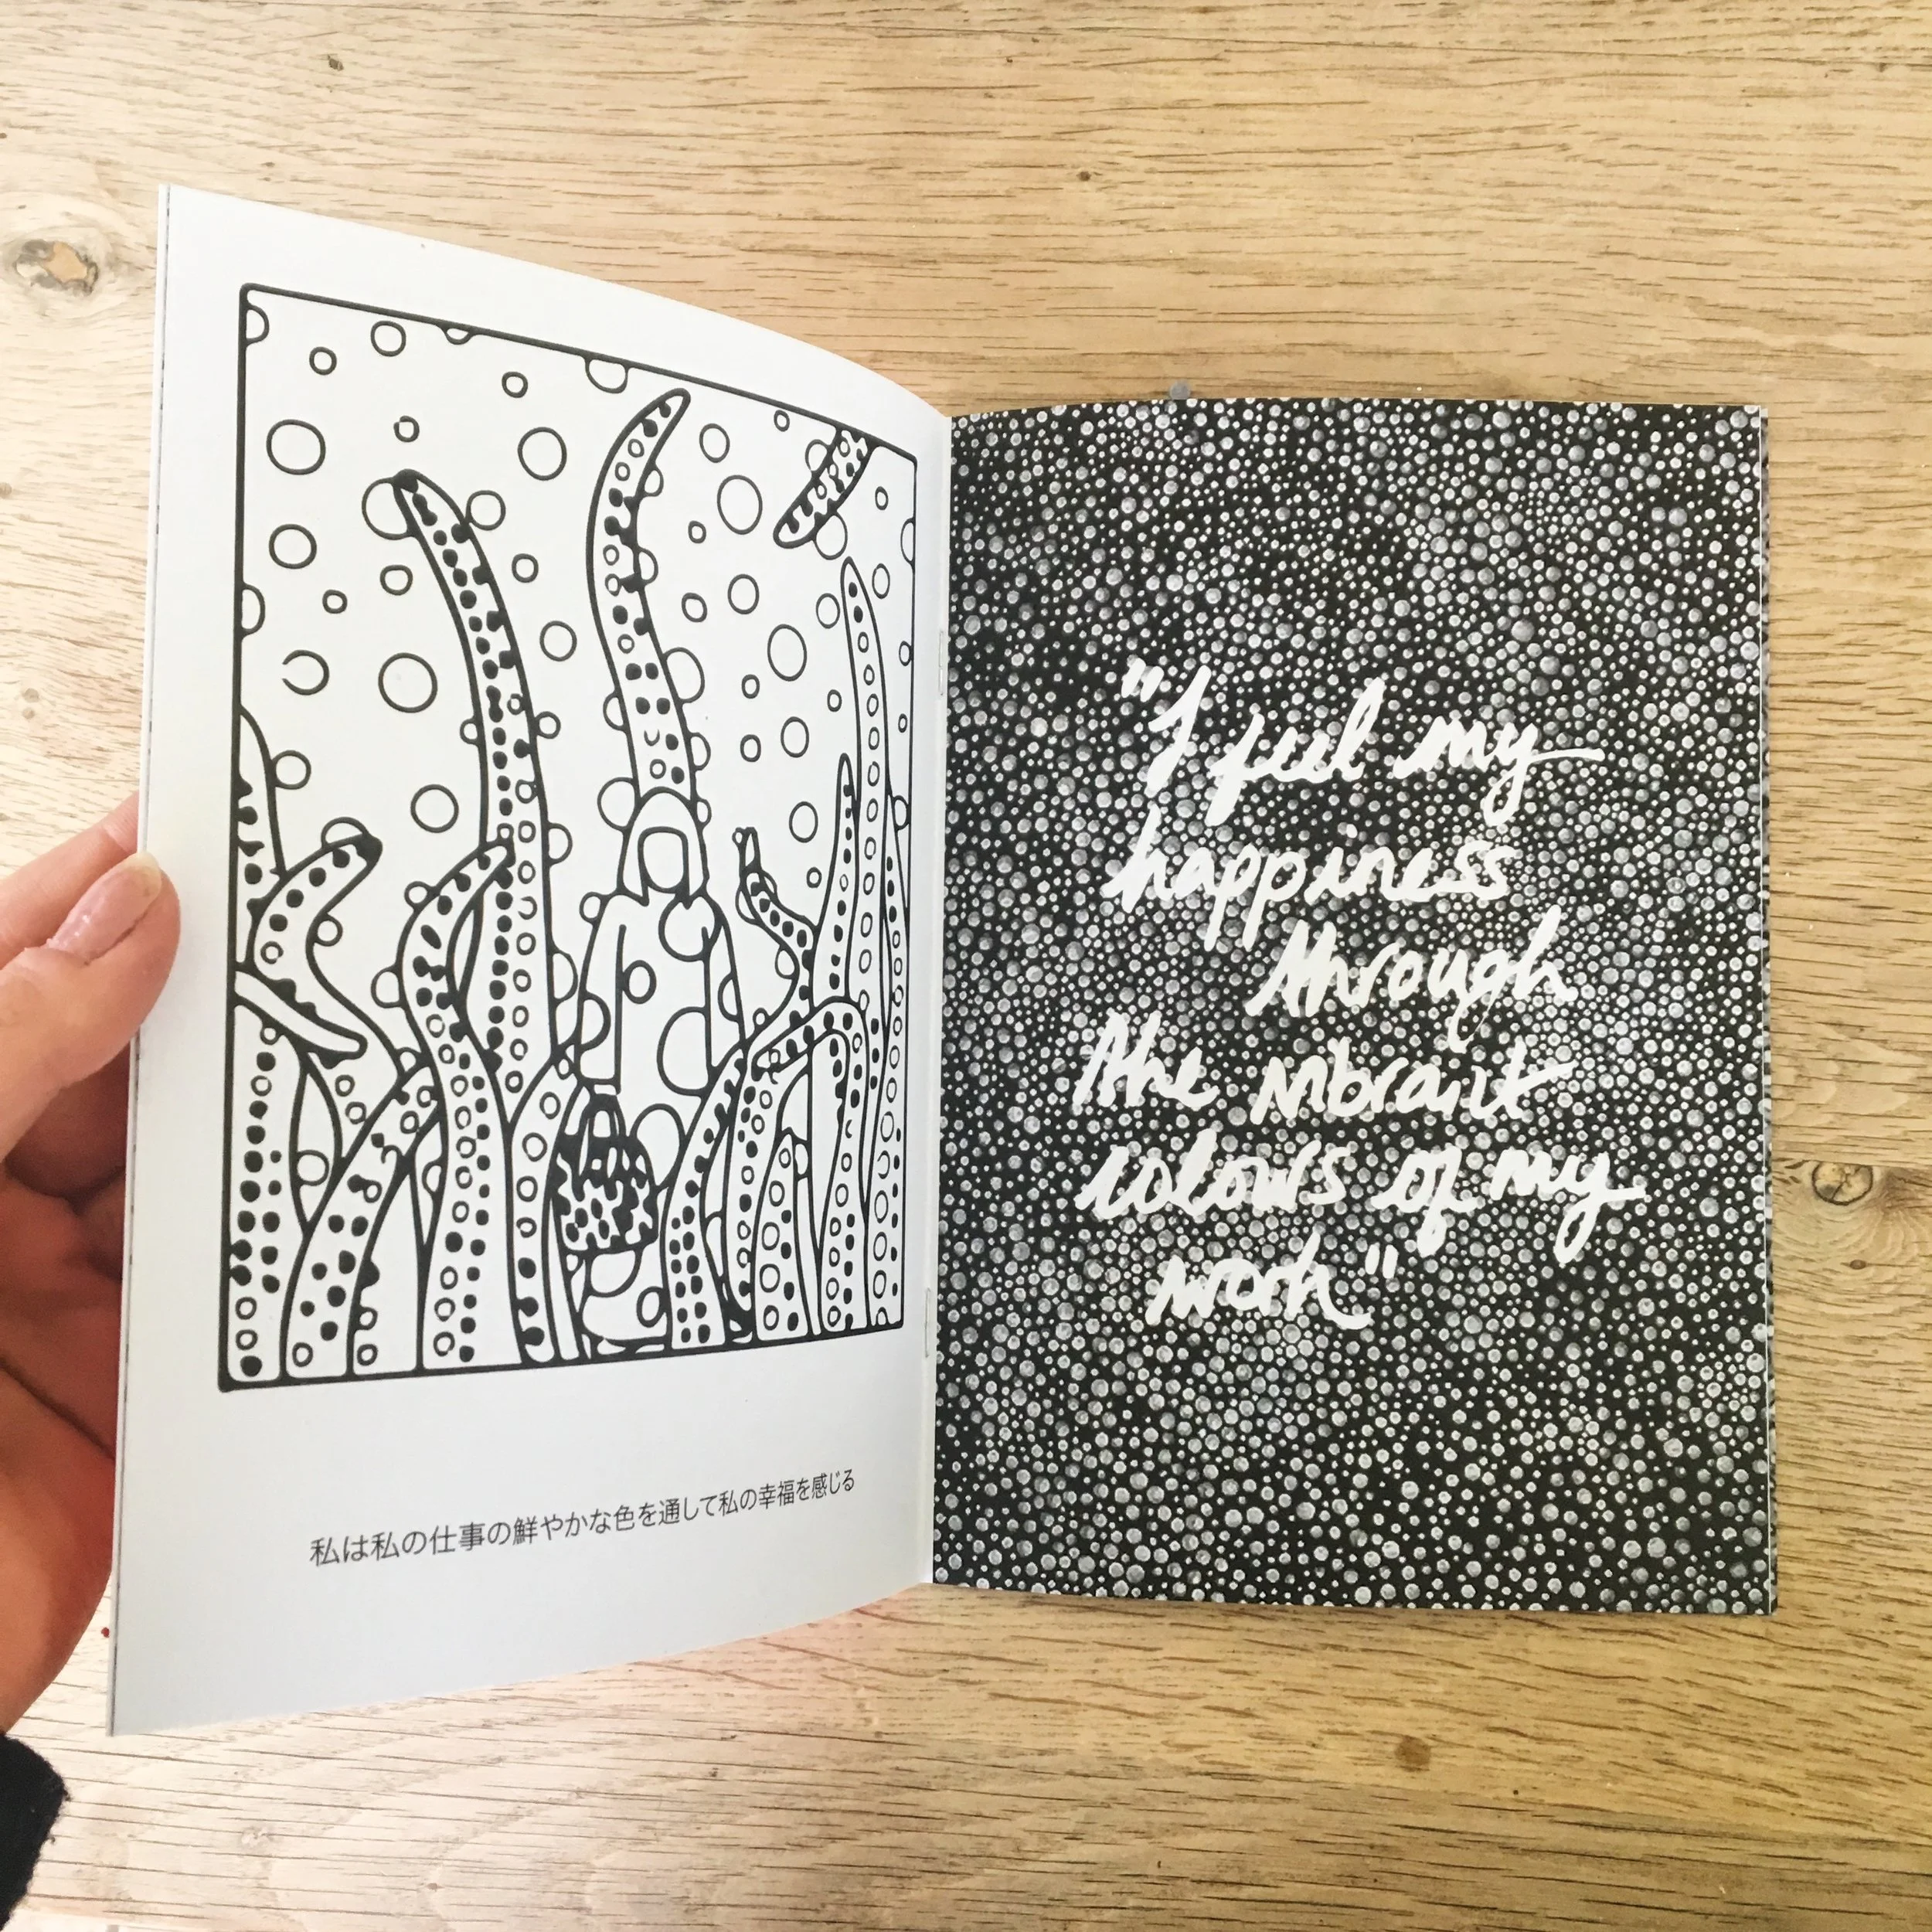 私は私の仕事の鮮やかな色を通して私の幸福を感じる
"I feel my
happiness
through
the vibrant
colours of my
work"